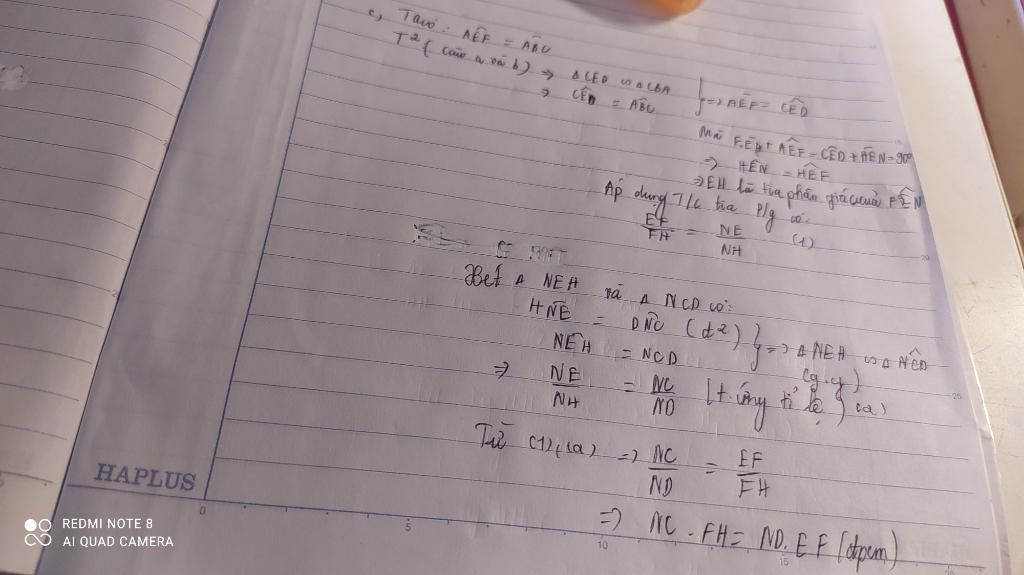 c, Ta có: AÊF = AB̂C
T² (câu a và b) => Δ CED ∽ Δ CBA
=> CÊD = AB̂C
} => AÊF = CÊD
Mà FÊH + AÊF = CÊD + HÊN = 90°
=> HÊN = HÊF
=> EH là tia phân giác của FÊN
Áp dụng T/c tia p/g có:
EF/FH = NE/NH (1)
Xét Δ NEH và Δ NCD có:
HN̂E = DN̂C (đ²)
NÊH = NĈD
} => Δ NEH ∽ Δ NCD (g.g)
=> NE/NH = NC/ND (t.ứng tỉ lệ) (2)
Từ (1), (2) => NC/ND = EF/FH
=> NC . FH = ND . EF (đpcm)
HAPLUS
0 5 10 15
20
25
REDMI NOTE 8
AI QUAD CAMERA